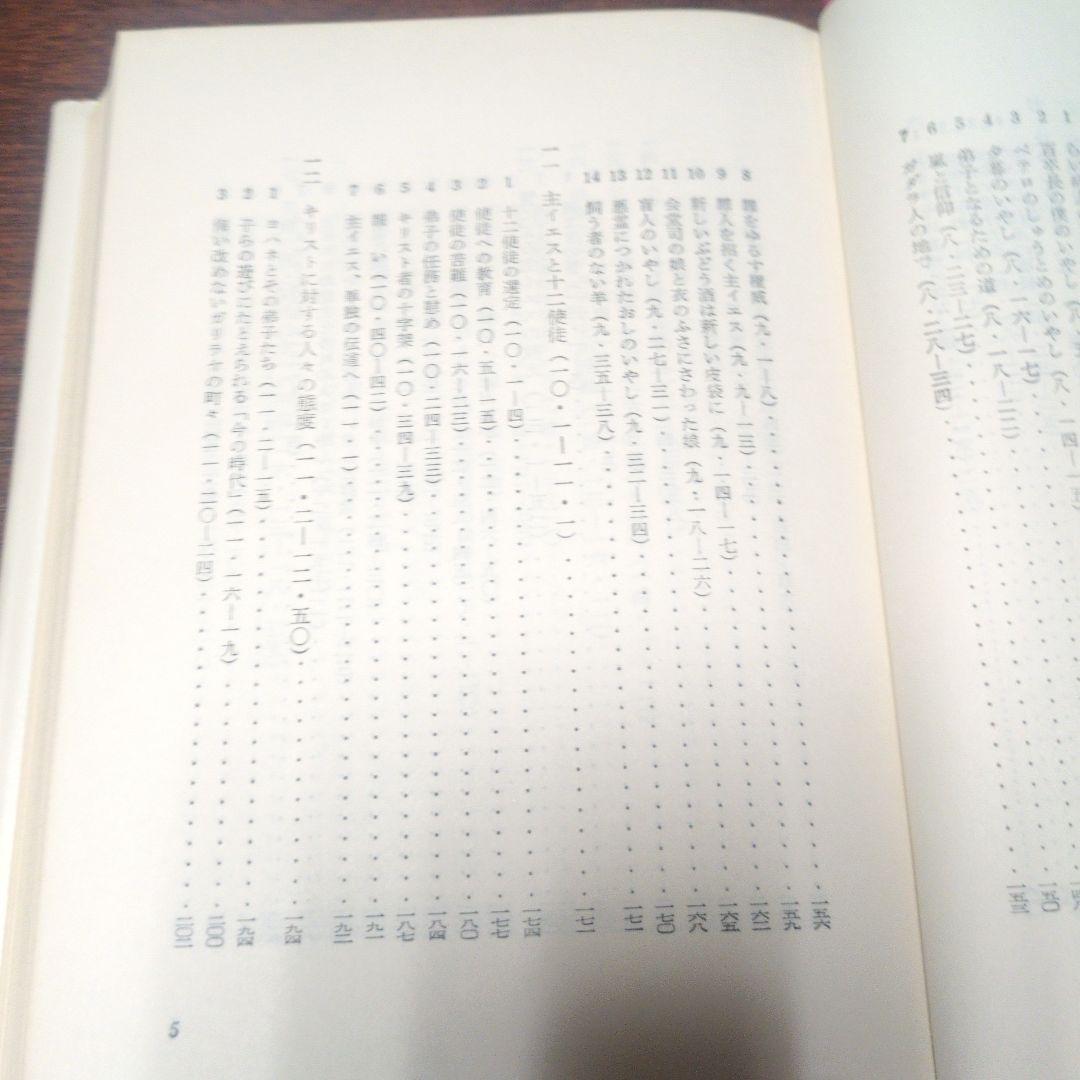 1
2 百卒長の僕のいやし（八・
3 ペテロのしゅうとめのいやし（八・一四―一五）
4 夕暮のいやし（八・一六―一七）
5 弟子となるための道（八・一八―二二）
6 嵐と信仰（八・二三―二七）
7 ガダラ人の地で（八・二八―三四）
一五〇
一五三
8 罪をゆるす権威（九・一―八）・・・一五六
9 罪人を招く主イエス（九・九―一三）・・・一五九
10 新しいぶどう酒は新しい皮袋に（九・一四―一七）・・・一六二
11 会堂司の娘と衣のふさにさわった娘（九・一八―二六）・・・一六五
12 盲人のいやし（九・二七―三一）・・・一六八
13 悪霊につかれたおしのいやし（九・三二―三四）・・・一七〇
14 飼う者のない羊（九・三五―三八）・・・一七一
一一 主イエスと十二使徒（一〇・一―一一・一）・・・一七一
1 十二使徒の選定（一〇・一―四）・・・一七四
2 使徒への教育（一〇・五―一五）・・・一七七
3 使徒の苦難（一〇・一六―二三）・・・一八〇
4 弟子の任務と慰め（一〇・二四―三三）・・・一八四
5 キリスト者の十字架（一〇・三四―三九）・・・一八七
6 報い（一〇・四〇―四二）・・・一九一
7 主イエス、単独の伝道へ（一一・一）・・・一九二
一二 キリストに対する人々の態度（一一・二―一二・五〇）・・・一九四
1 ヨハネとその弟子たち（一一・二―一五）・・・一九四
2 子らの遊びにたとえられる「今の時代」（一一・一六―一九）・・・二〇〇
3 悔い改めないガリラヤの町々（一一・二〇―二四）・・・二〇二
5